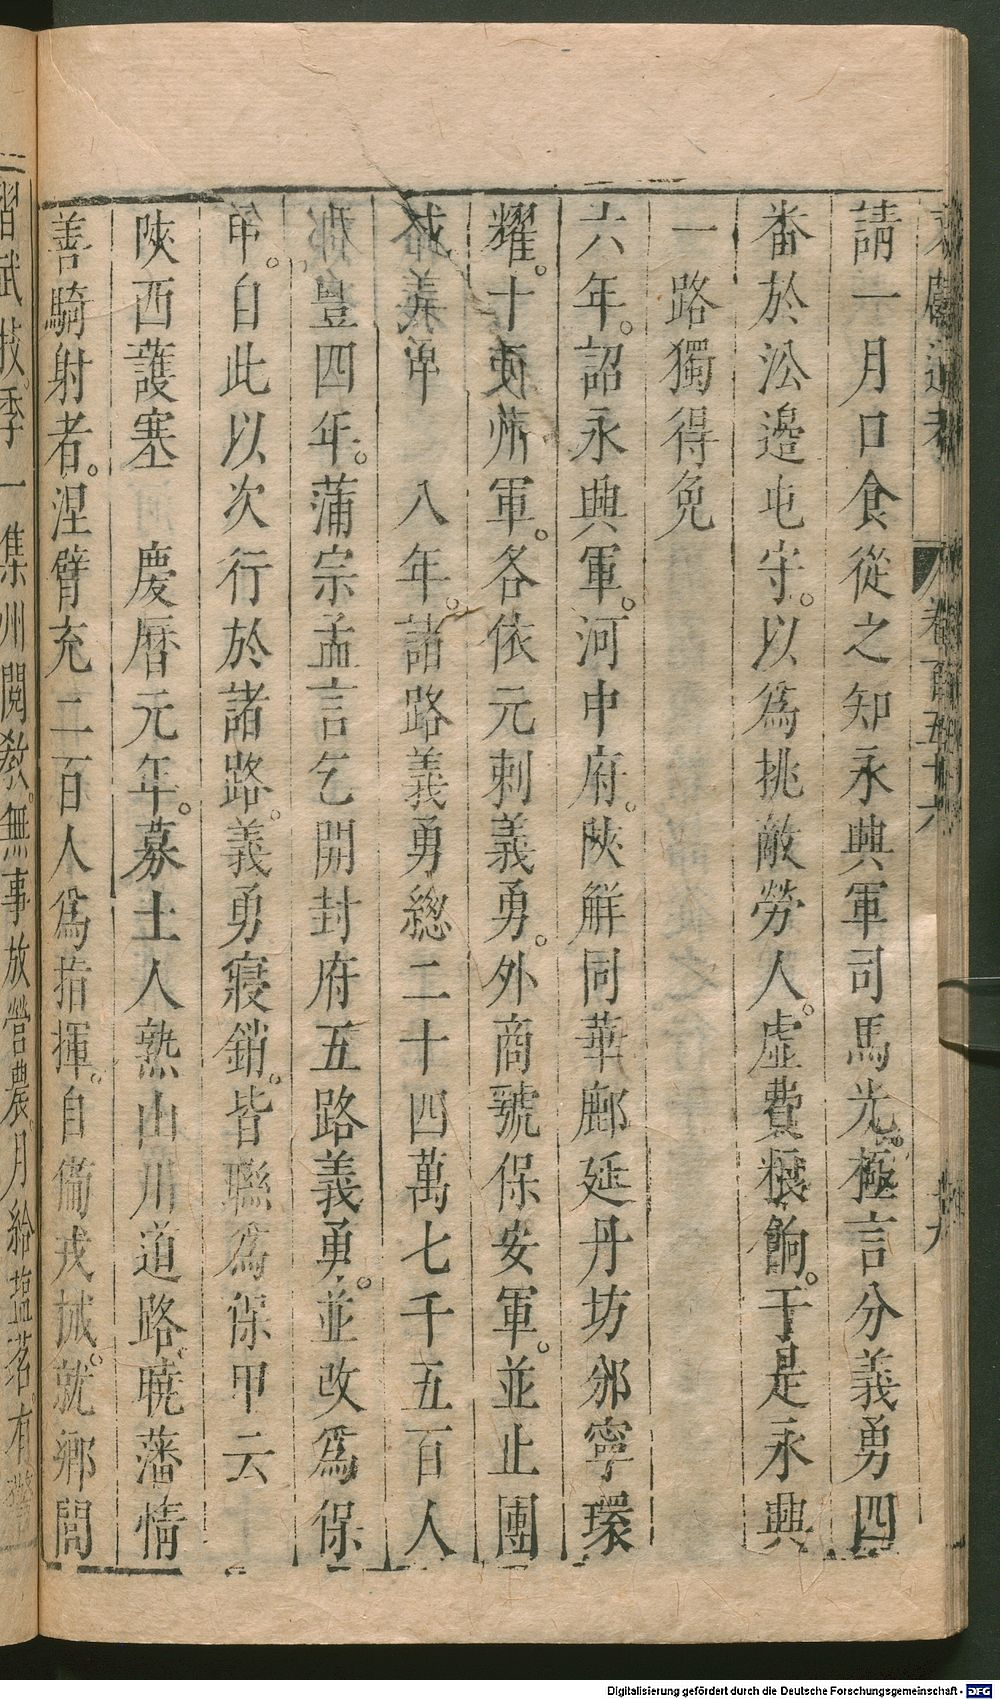 文獻通考 卷一百五十六 十九
請一月口食從之知永興軍司馬光極言分義勇四
番於㳂邊屯守以為挑敵勞人虛費糧餉于是永興
一路獨得免
六年詔永興軍河中府陜解同華鄜延丹坊邠寧環
耀十
州軍各依元刺義勇外商虢保安軍並止團
義
八年諸路義勇緫二十四萬七千五百人
豊四年蒲宗孟言乞開封府五路義勇並改為保
甲自此以次行於諸路義勇寢銷皆聯為保甲云
陝西護塞 慶曆元年募土人熟山川道路曉藩情
善騎射者涅臂充二百人為指揮自備戎械就鄉閭
習武技季一集州閱教無事放營農月給塩茗有警
Digitalisierung gefördert durch die Deutsche Forschungsgemeinschaft - DFG